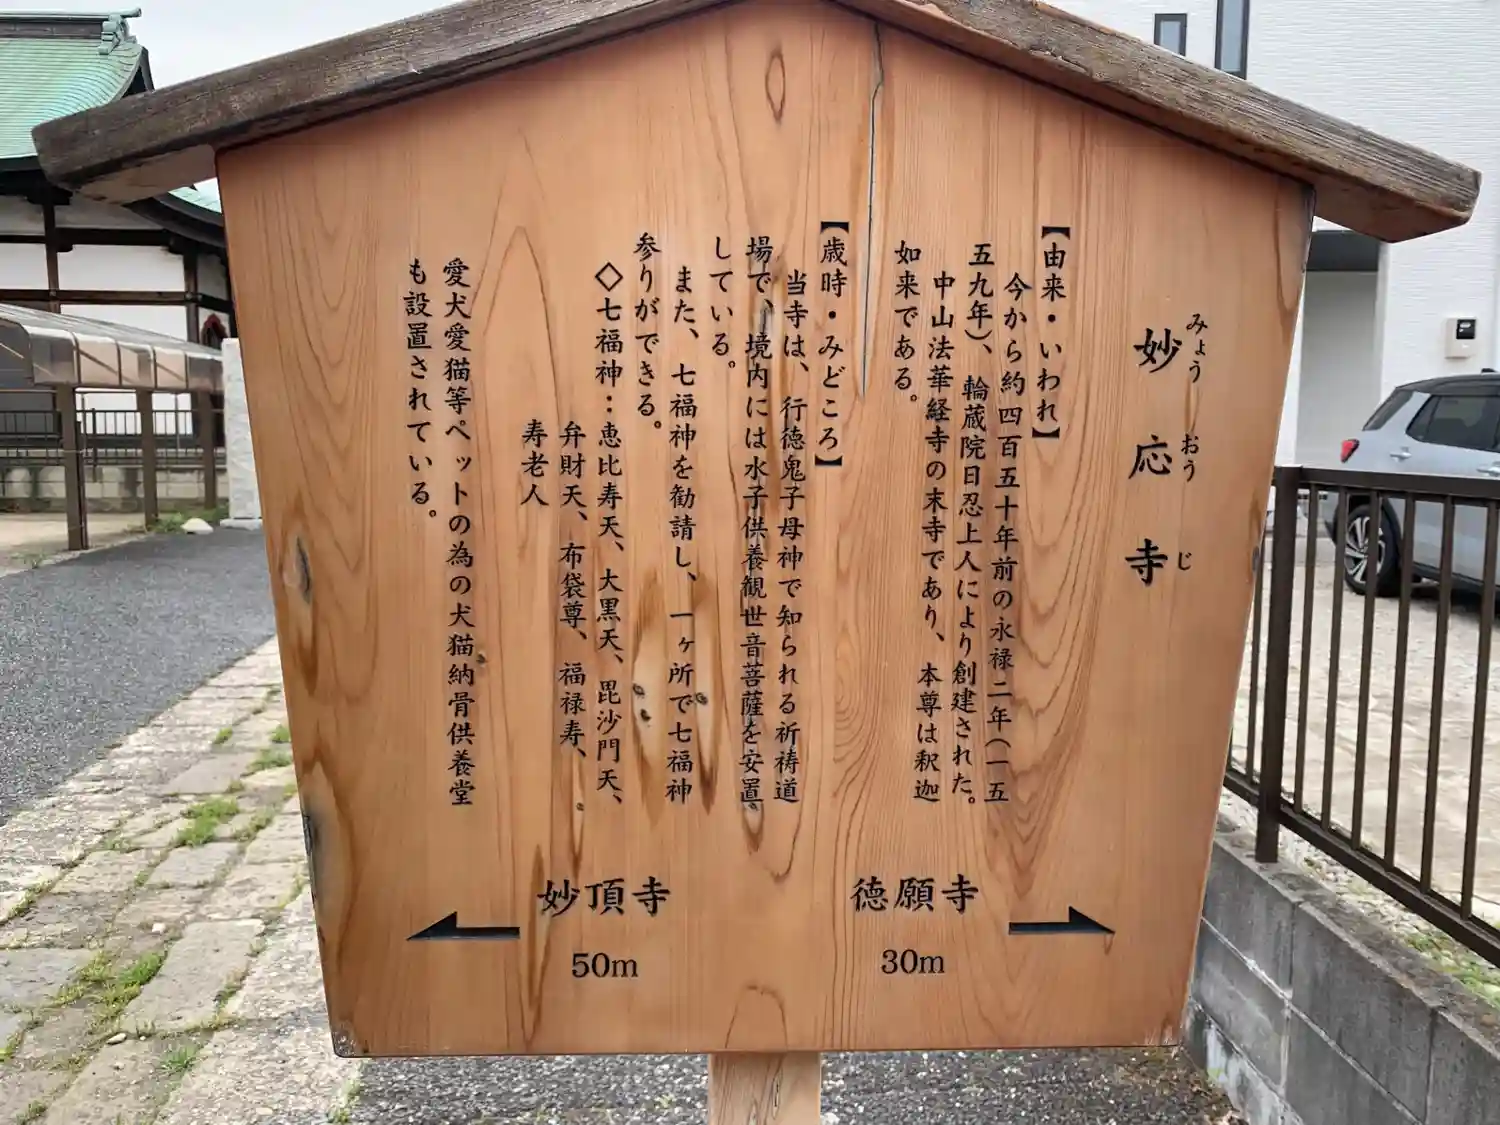 妙応寺
みょう おう じ
【由来・いわれ】
今から約四百五十年前の永禄二年(一五
五九年)、輪蔵院日忍上人により創建された。
中山法華経寺の末寺であり、本尊は釈迦
如来である。
【歳時・みどころ】
当寺は、行徳鬼子母神で知られる祈祷道
場で、境内には水子供養観世音菩薩を安置
している。
また、七福神を勧請し、一ヶ所で七福神
参りができる。
◇七福神:恵比寿天、大黒天、毘沙門天、
弁財天、布袋尊、福禄寿、
寿老人
愛犬愛猫等ペットの為の犬猫納骨供養堂
も設置されている。
徳願寺
30m
妙頂寺
50m